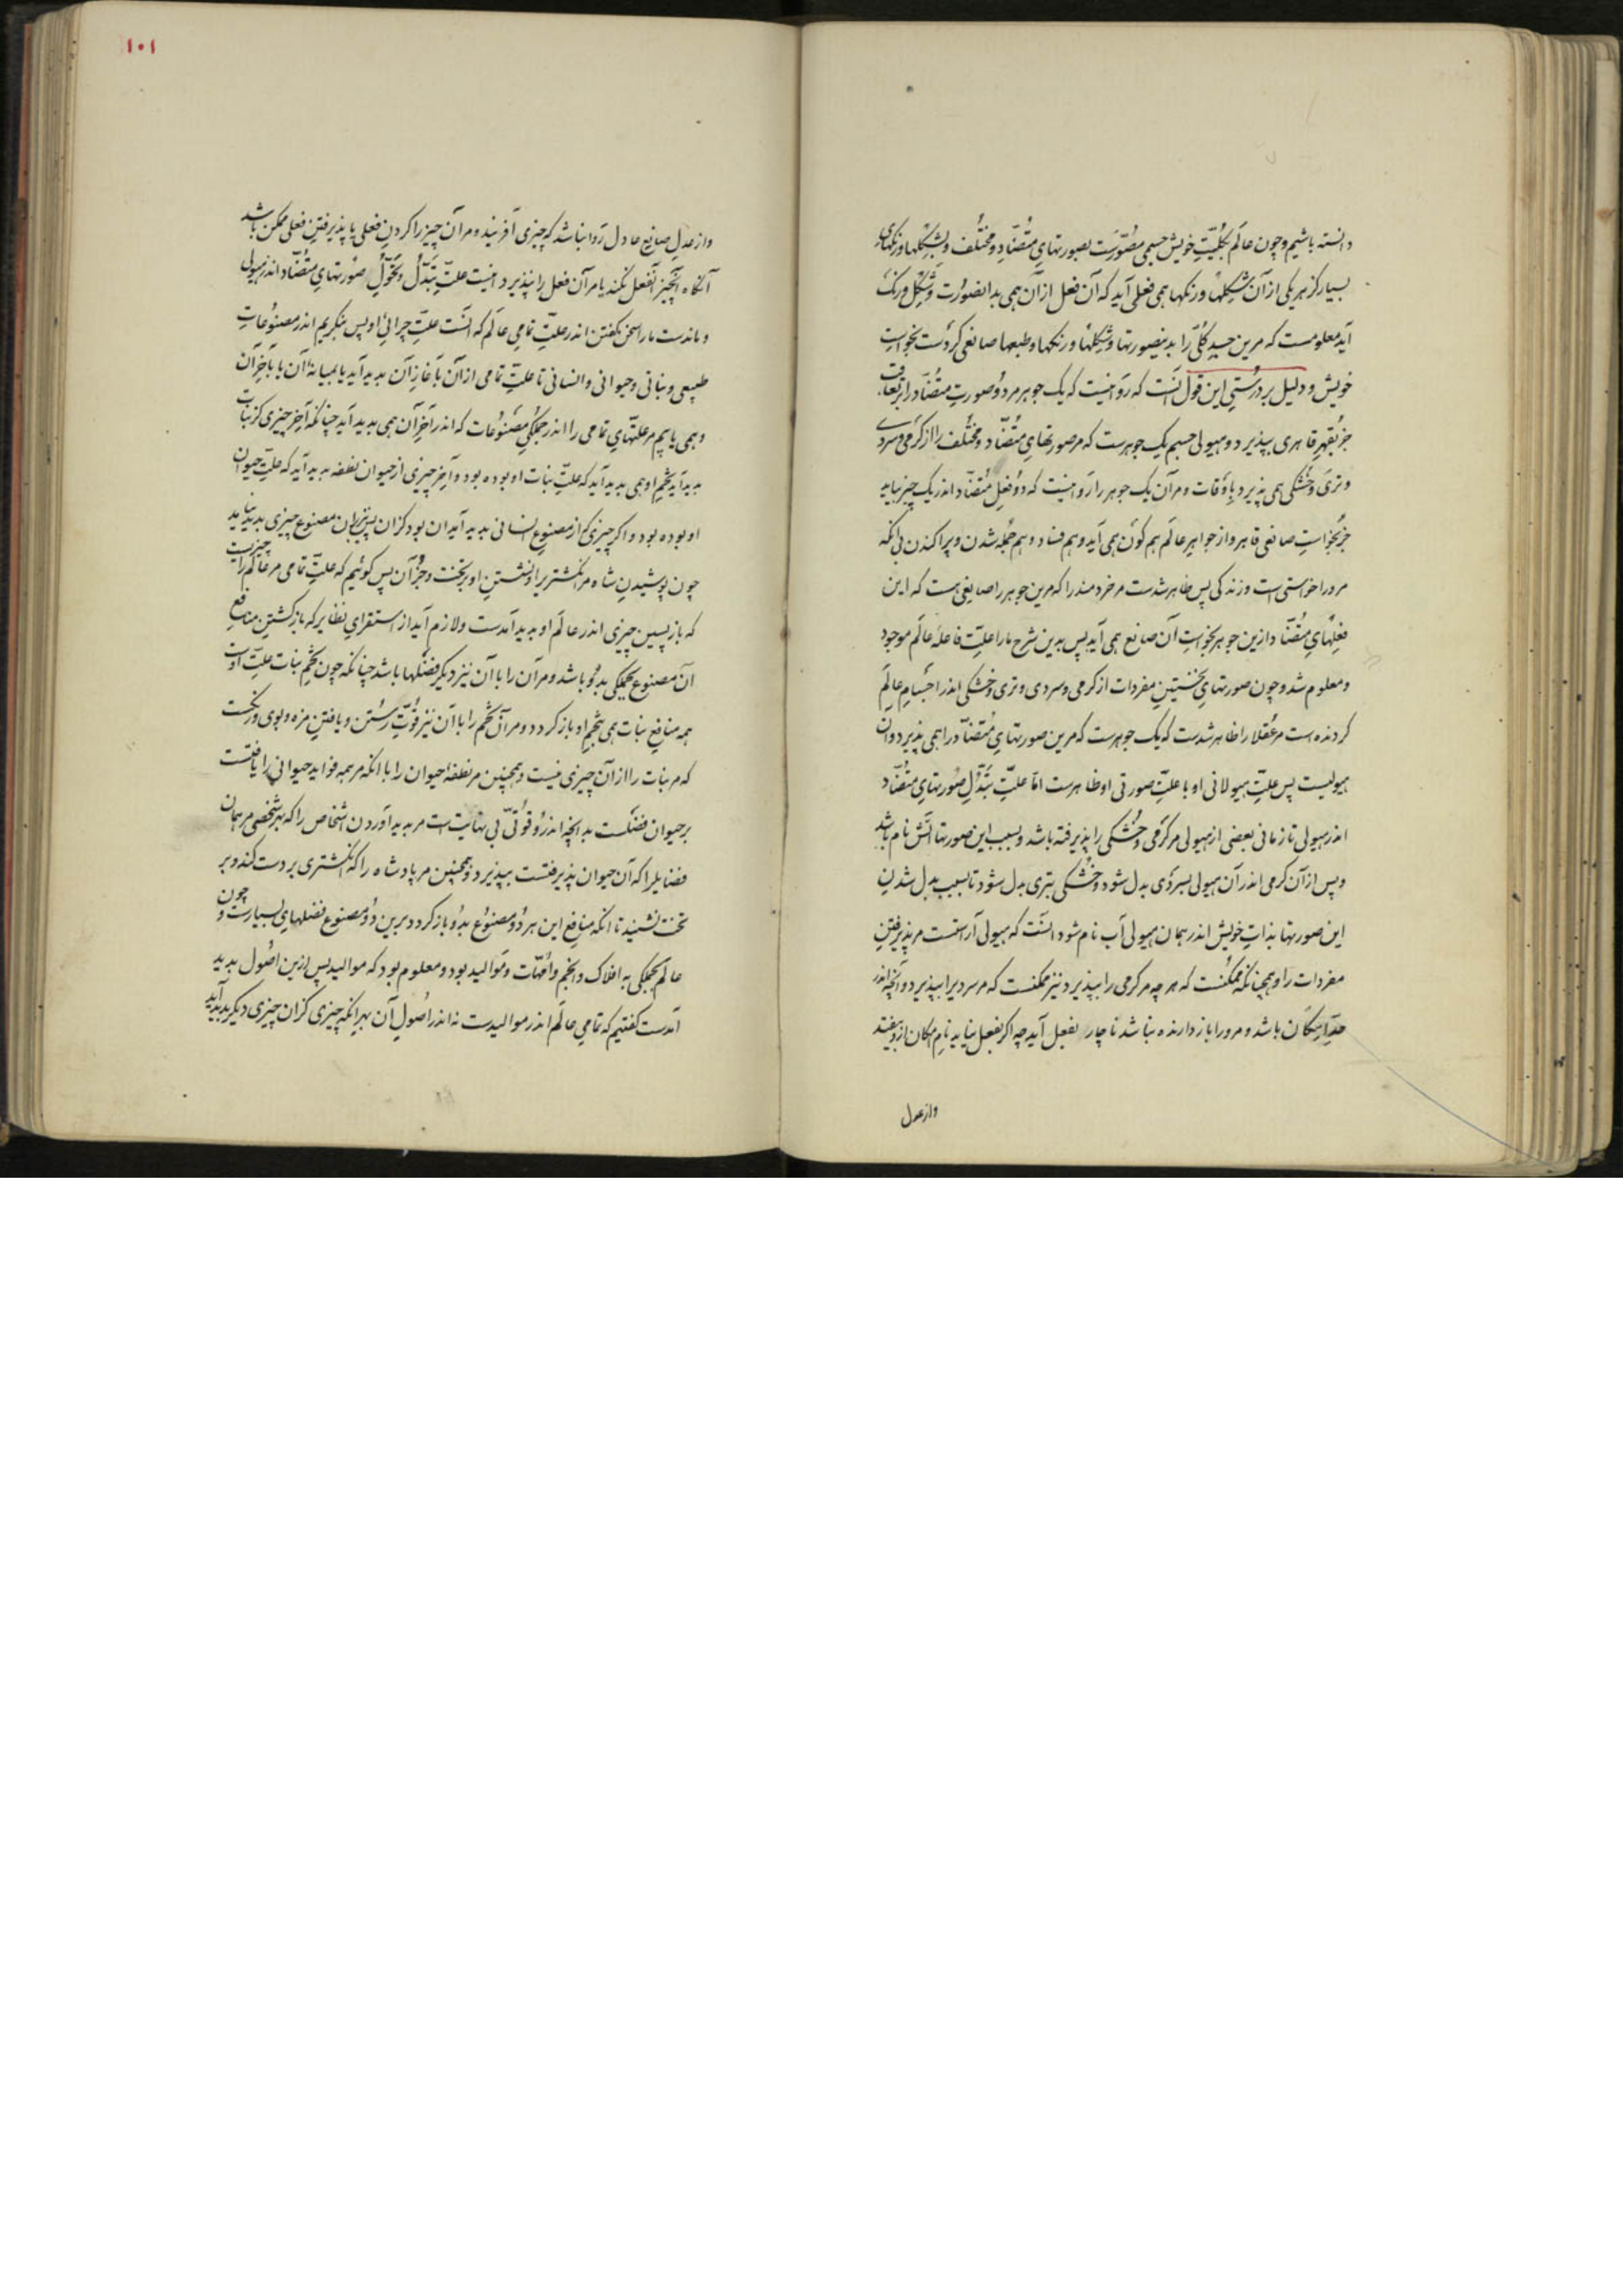 دانسته باشیم و چون عالم بکلیّتِ خویش جسمی مصوّرست بصورتهایِ متضاد و مختلف و بشکلها و رنکهای
بسیار کز هر یکی از آن شکلها و رنکها همی فعلی آید که آن فعل از آن همی بدانصورت و شکل و رنک
آید معلومست که مرین جسدِ کلّی را بدینصورتها و شکلها و رنکها و طبعها صانعی کردست بخواستِ
خویش و دلیل بر درستیِ این قول آنست که روا نیست که یک جوهر مر دو صورتِ متضاد را بتعاقب
جز بقهرِ قاهری بپذیرد و هیولی جسم یک جوهرست که مر صورتهایِ متضاد و مختلف را از کرمی و سردی
و تری و خشکی همی پذیرد باوقات و مر آن یک جوهر را روا نیست که دو فعلِ متضاد اندر یک چیز بیاید
جز بخواستِ صانعی قاهر و از جواهرِ عالم هم کون همی آید و هم فساد و هم جمله شدن و پراکندن بی آنکه
مرورا خواستی است و زندکی پس ظاهر شدست مر خردمند را که مرین جوهر را صانعی هست که این
فعلهایِ متضاد ازین جوهر بخواستِ آن صانع همی آید پس بدین شرح ما را علتِ فاعله عالم موجود
و معلوم شد و چون صورتهایِ نخستینِ مفردات از کرمی و سردی و تری و خشکی اندر اجسامِ عالم
کردنده است مر عقلا را ظاهر شدست که یک جوهرست که مرین صورتهایِ متضاد را همی پذیرد و آن
هیولیست پس علتِ هیولانی او با علتِ صورتی او ظاهرست امّا علتِ تبدّلِ صورتهایِ متضاد
اندر هیولی تا زمانی بعضی از هیولی مر کرمی و خشکی را پذیرفته باشد و بسبب این صورتها آتش نام باشد
و پس از آن کرمی اندر آن هیولی بسردی بدل شود و خشکی بتری بدل شود تا بسبب بدل شدنِ
این صورتها بذاتِ خویش اندر همان هیولی آب نام شود آنست که هیولی آراستست مر پذیرفتنِ
مفردات را و همچنانکه ممکنست که هر چه مر کرمی را بپذیرد نیز ممکنست که مر سردیرا بپذیرد و آنچه اندر
حدِّ امکان باشد و مرورا باز دارنده نباشد ناچار بفعل آید چه اکر بفعل نیاید نامِ امکان ازو بیفتد
و از عدل
۱۰۱
و از عدلِ صانعِ عادل روا نباشد که چیزی آفرینید و مر آن چیز را کردنِ فعلی یا پذیرفتنِ فعلی ممکن باشد
آنکاه آنچیز آنفعل نکند یا مر آن فعل را نپذیرد اینست علتِ تبدّل و تحوّلِ صورتهایِ متضاد اندر هیولی
و ماندست ما را سخن کفتن اندر علتِ تمامیِ عالم که آنست علتِ چرائیِ او پس بنکریم اندر مصنوعاتِ
طبیعی و نباتی و حیوانی و انسانی تا علتِ تمامی از آن بآغازِ آن پدید آید یا بمیانهٔ آن یا بآخرِ آن
و همی یابیم مر علتهایِ تمامی را اندر جملکیِ مصنوعات که اندر آخرِ آن همی پدید آید چنانکه آخر چیزی کز نبات
پدید آید تخمِ او همی پدید آید که علتِ نبات او بوده بود و آخر چیزی از حیوان نطفه پدید آید که علتِ حیوان
او بوده بود و اکر چیزی کز از مصنوعِ انسانی پدید آید آن بود کز آن پس از آن مصنوع چیزی پدید نیاید
چون پوشیدنِ شاه مر انکشتریرا و نشستنِ او بر تخت و جز آن پس کوئیم که علتِ تمامی مر عالم را چیزیست
که باز پسین چیزی اندر عالم او پدید آمدست و لازم آید از استقرایِ نظایر که باز کشتنِ منافعِ
آن مصنوع بجملکی بدو باشد و مر آن را با آن نیز دیکر فضلها باشد چنانکه چون تخمِ نبات علتِ اوست
همه منافعِ نبات همی بتخمِ او باز کردد و مر آن تخم را با آن نیز قوّتِ رستن و یافتنِ مزه و بوی و رنکست
که مر نبات را از آن چیزی نیست و همچنین مر نطفهٔ حیوان را با آنکه مر همه فوایدِ حیوانی را یافتست
بر حیوان فضلست بدانچه اندرو قوّتی بی نهایت است مر پدید آوردن اشخاص را که هر شخصی مر همان
فضایلرا که آن حیوان پذیرفتست بپذیرد و همچنین مر پادشاه را که انکشتری بر دست کند و بر
تخت نشیند با آنکه منافعِ این هر دو مصنوع بدو باز کردد برین دو مصنوع فضلهایِ بسیارست و چون
عالم بجملکی به افلاک و انجم و امّهات و موالید بود و معلوم بود که موالید پس ازین اصول پدید
آمدست کفتیم که تمامیِ عالم اندر موالیدست نه اندر اصولِ آن بهرِ آنکه چیزی کز آن چیزی دیکر پدید آید